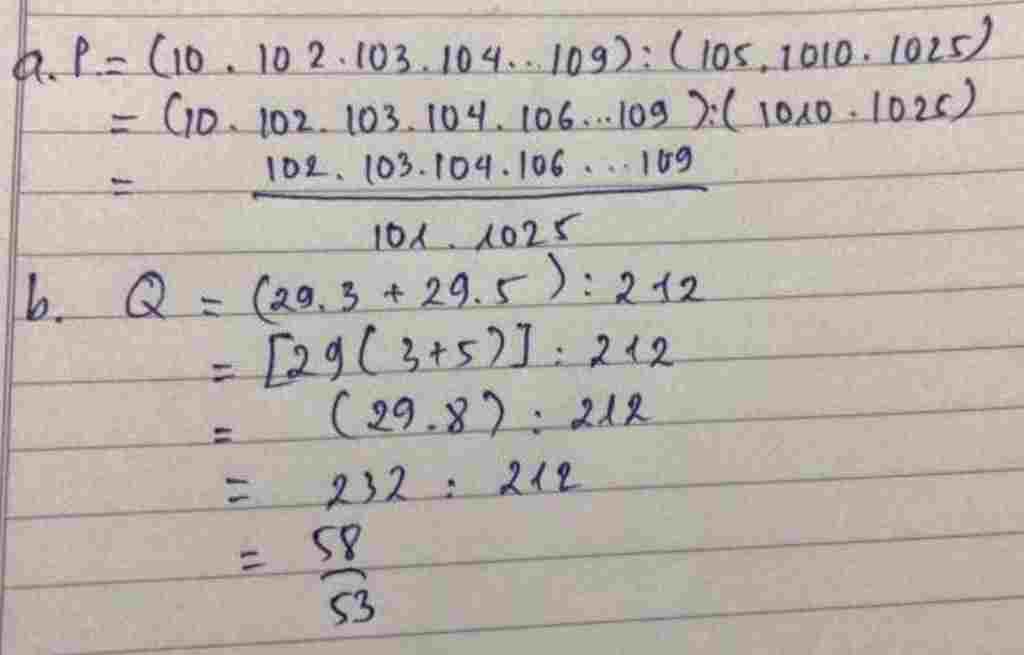 a. P = (10 . 102 . 103 . 104 ... 109) : (105 . 1010 . 1025)
= (10 . 102 . 103 . 104 . 106 ... 109) : (1010 . 1025)
= 102 . 103 . 104 . 106 ... 109
101 . 1025
b. Q = (29.3 + 29.5) : 212
= [29(3+5)] : 212
= (29.8) : 212
= 232 : 212
= 58
53